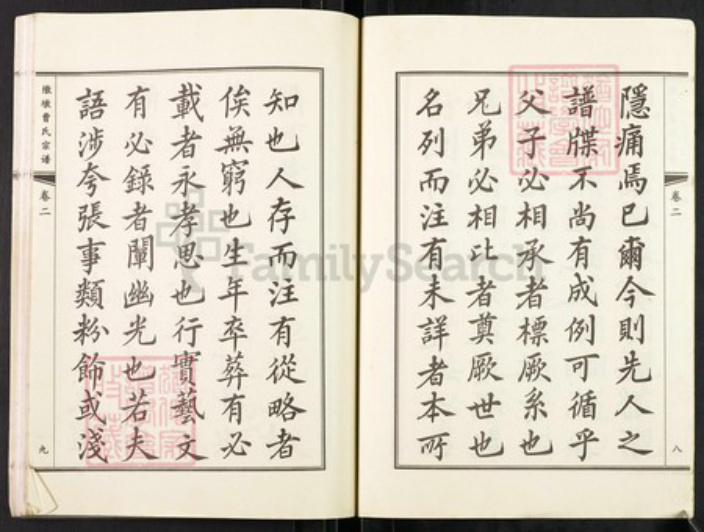 隱痛焉已爾今則先人之
譜牒不尚有成例可循乎
父子必相承者標厥系也
兄弟必相比者奠厥世也
名列而注有未詳者本所
卷二
八
知也人存而注有從略者
俟無窮也生年卒葬有必
載者永孝思也行實藝文
有必錄者闡幽光也若夫
語涉夸張事類粉飾或淺
墩曹氏宗谱
卷二
九
FamilySearch